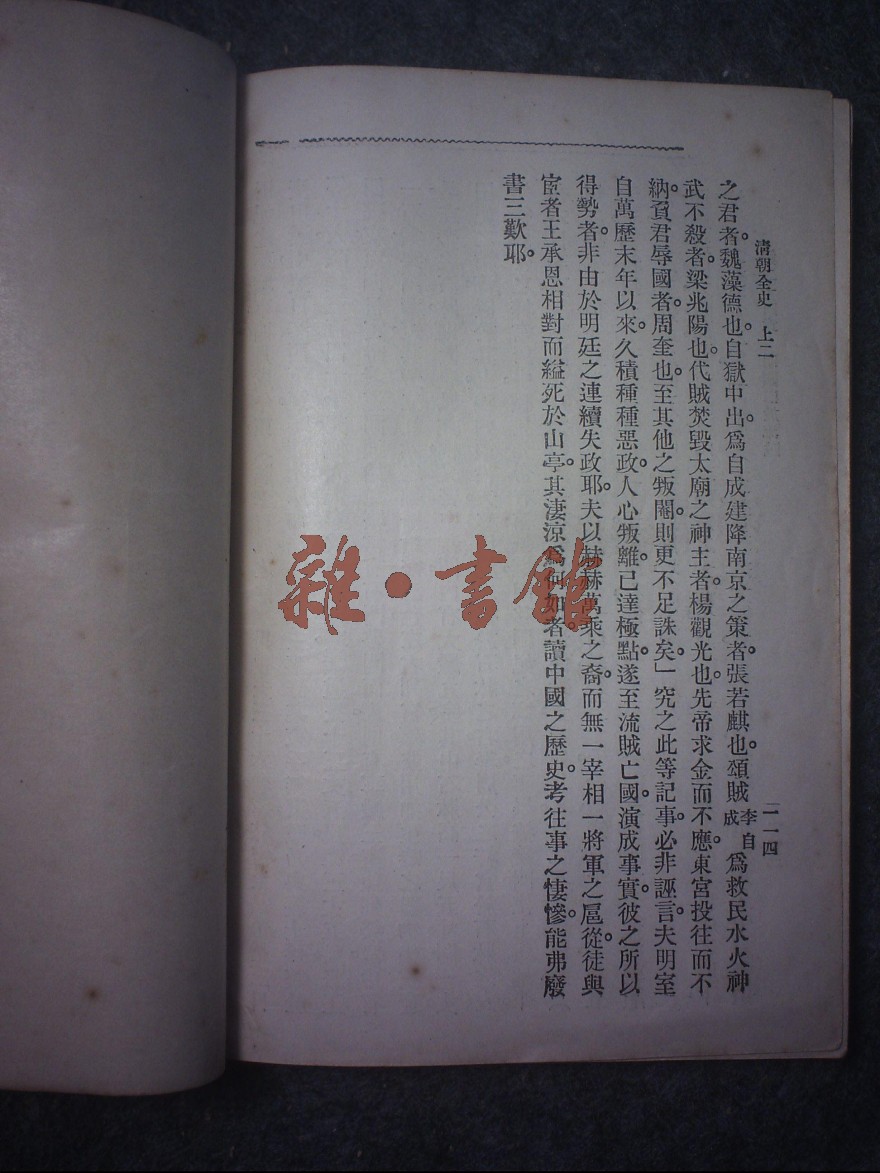 清朝全史 上二 一一四
之君者。魏藻德也。自獄中出。爲自成建降南京之策者。張若麒也。頌賊李自成爲救民水火神
武不殺者。梁兆陽也。代賊焚毀太廟之神主者。楊觀光也。先帝求金而不應。東宮投往而不
納。負君辱國者。周奎也。至其他之叛閹。則更不足誅矣。」究之此等記事。必非誣言。夫明室
自萬歷末年以來。久積種種惡政。人心叛離。已達極點。遂至流賊亡國。演成事實。彼之所以
得勢者。非由於明廷之連續失政耶。夫以赫赫萬乘之裔。而無一宰相一將軍之扈從。徒與
宦者王承恩相對而縊死於山亭。其淒涼爲何如者。讀中國之歷史。考往事之悽慘。能弗廢
書三歎耶。
雜·書館